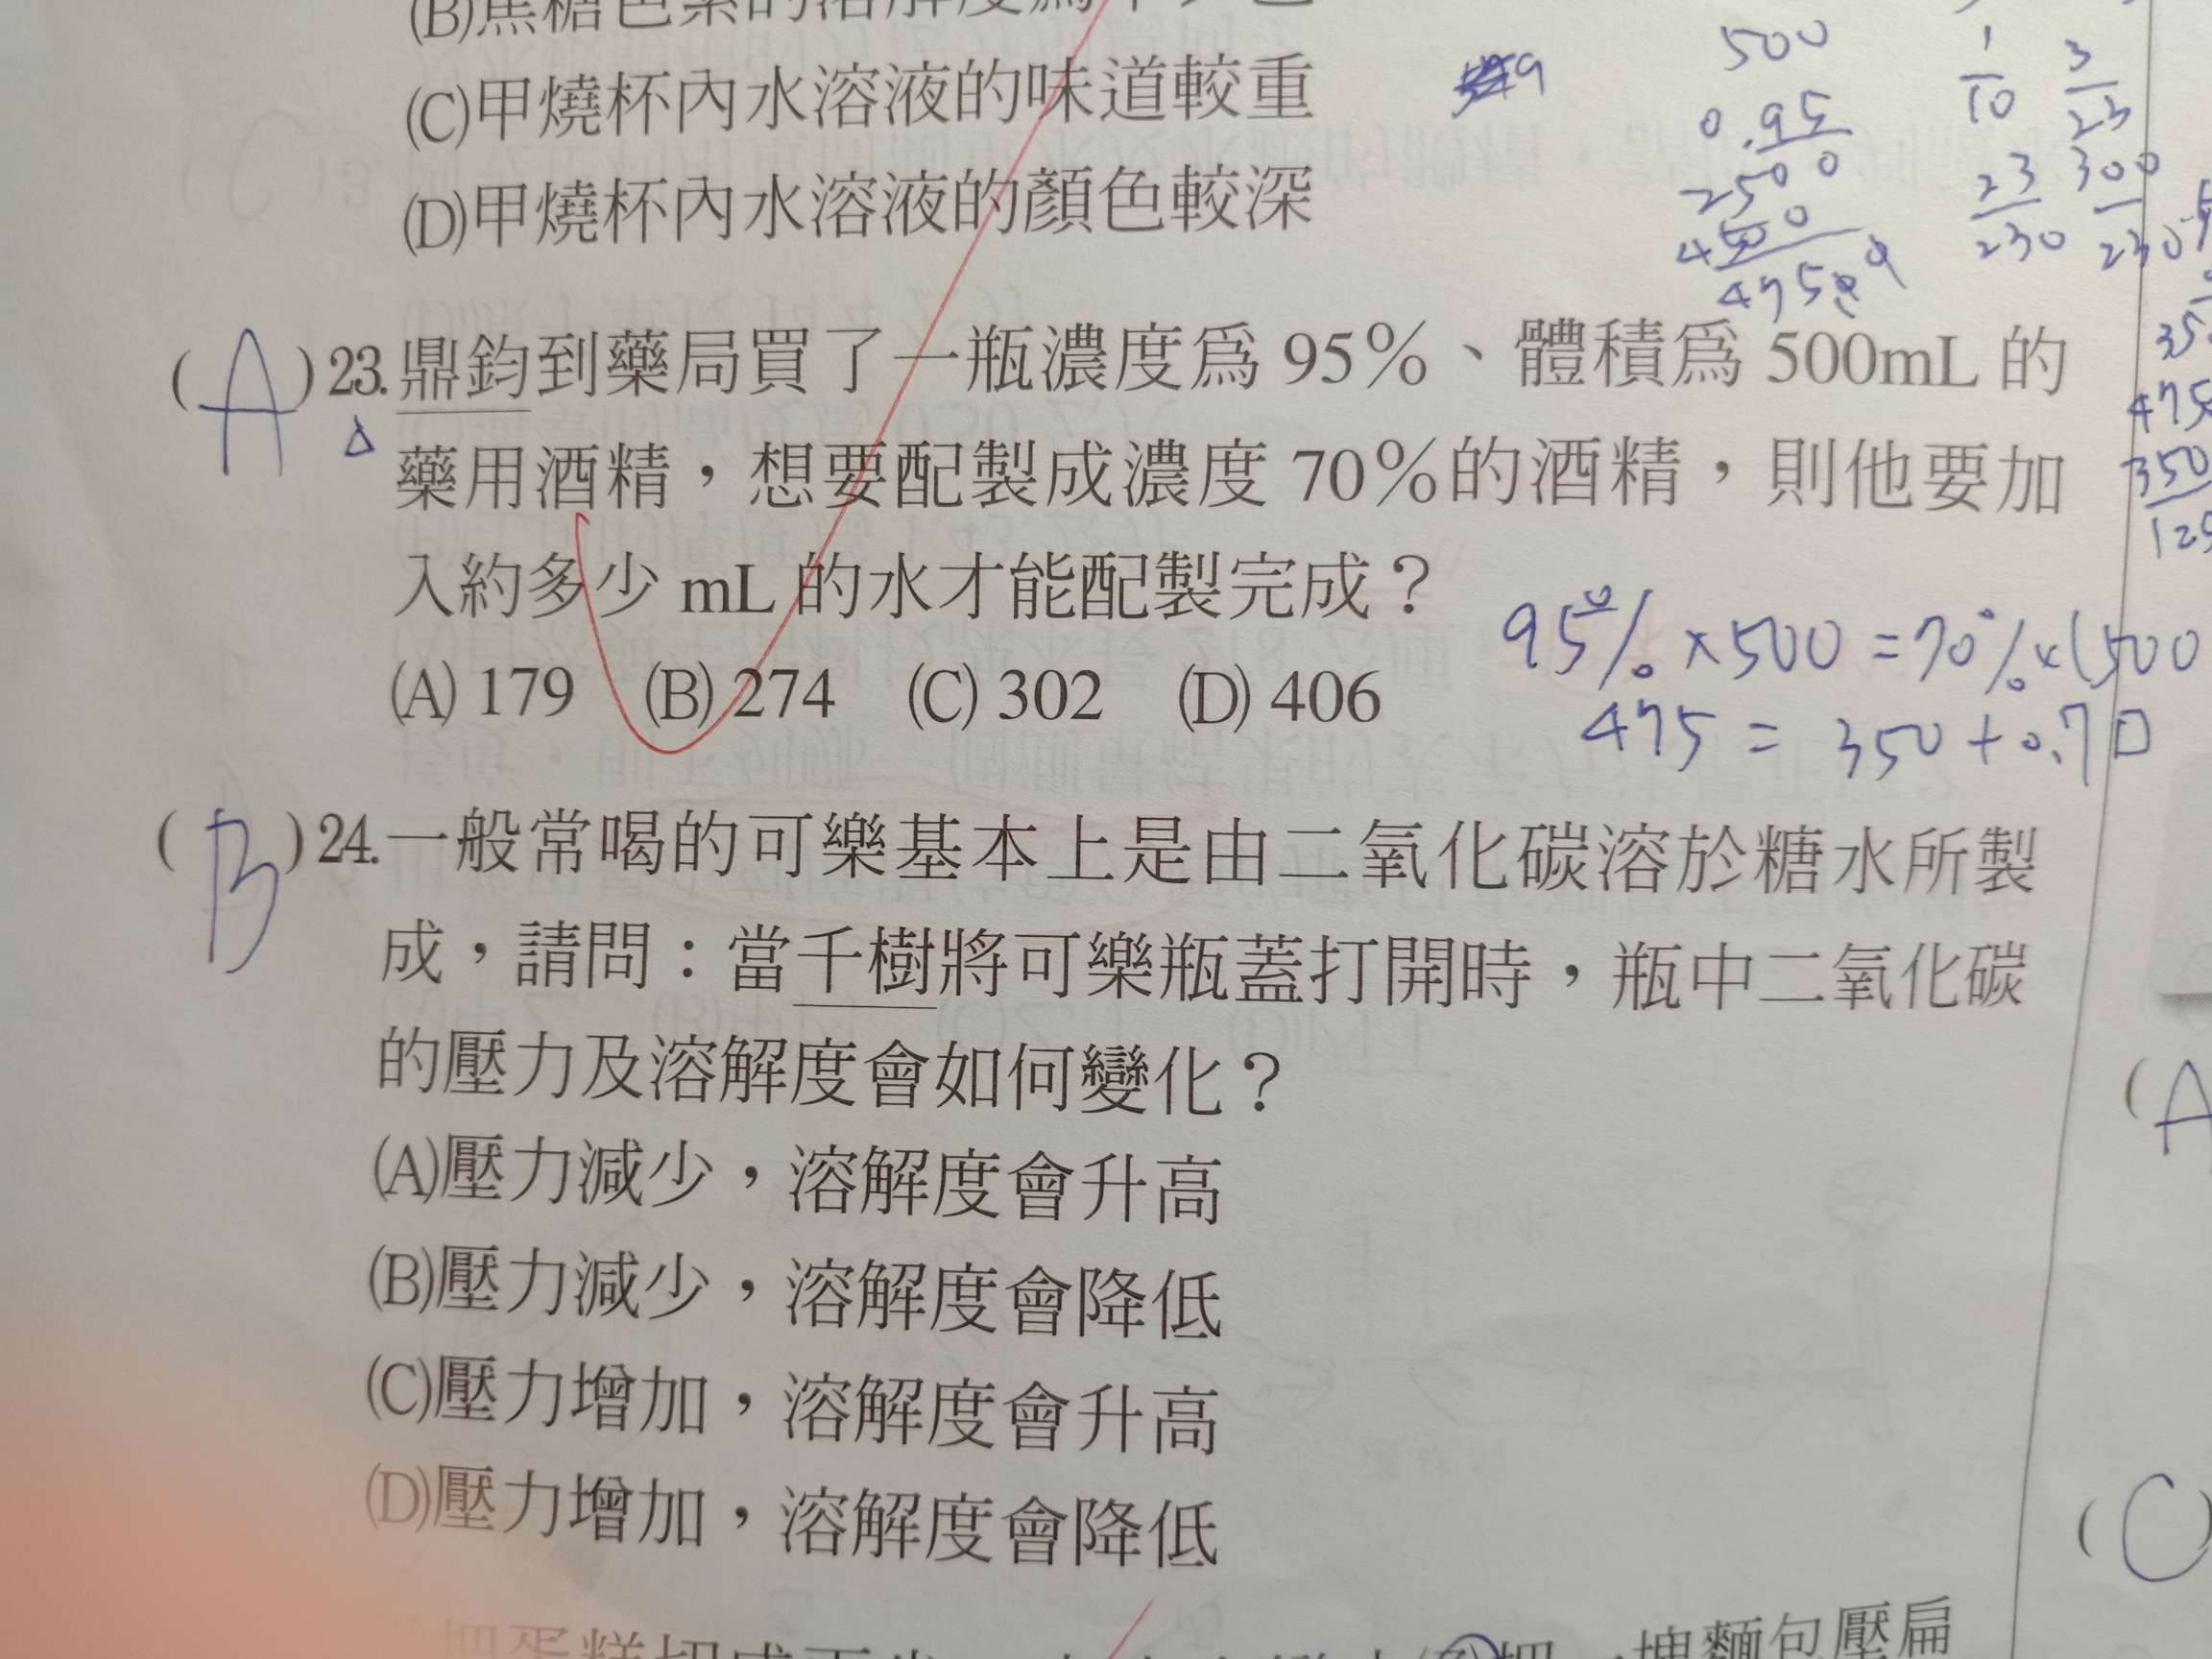 (B)焦糖色素的溶解度
(C)甲燒杯內水溶液的味道較重
(D)甲燒杯內水溶液的顏色較深
500
0.95
2500
4500
1/10 3/23
23/230 300/230
(A)23.鼎鈞到藥局買了一瓶濃度為95%、體積為500mL的
藥用酒精，想要配製成濃度70%的酒精，則他要加
入約多少mL的水才能配製完成？
(A) 179 (B) 274 (C) 302 (D) 406
475
350
125
95%×500=70%×(500
475=350+0.7□
(B)24.一般常喝的可樂基本上是由二氧化碳溶於糖水所製
成，請問：當千樹將可樂瓶蓋打開時，瓶中二氧化碳
的壓力及溶解度會如何變化？
(A)壓力減少，溶解度會升高
(B)壓力減少，溶解度會降低
(C)壓力增加，溶解度會升高
(D)壓力增加，溶解度會降低
(A
(C)
把一塊麵包壓扁